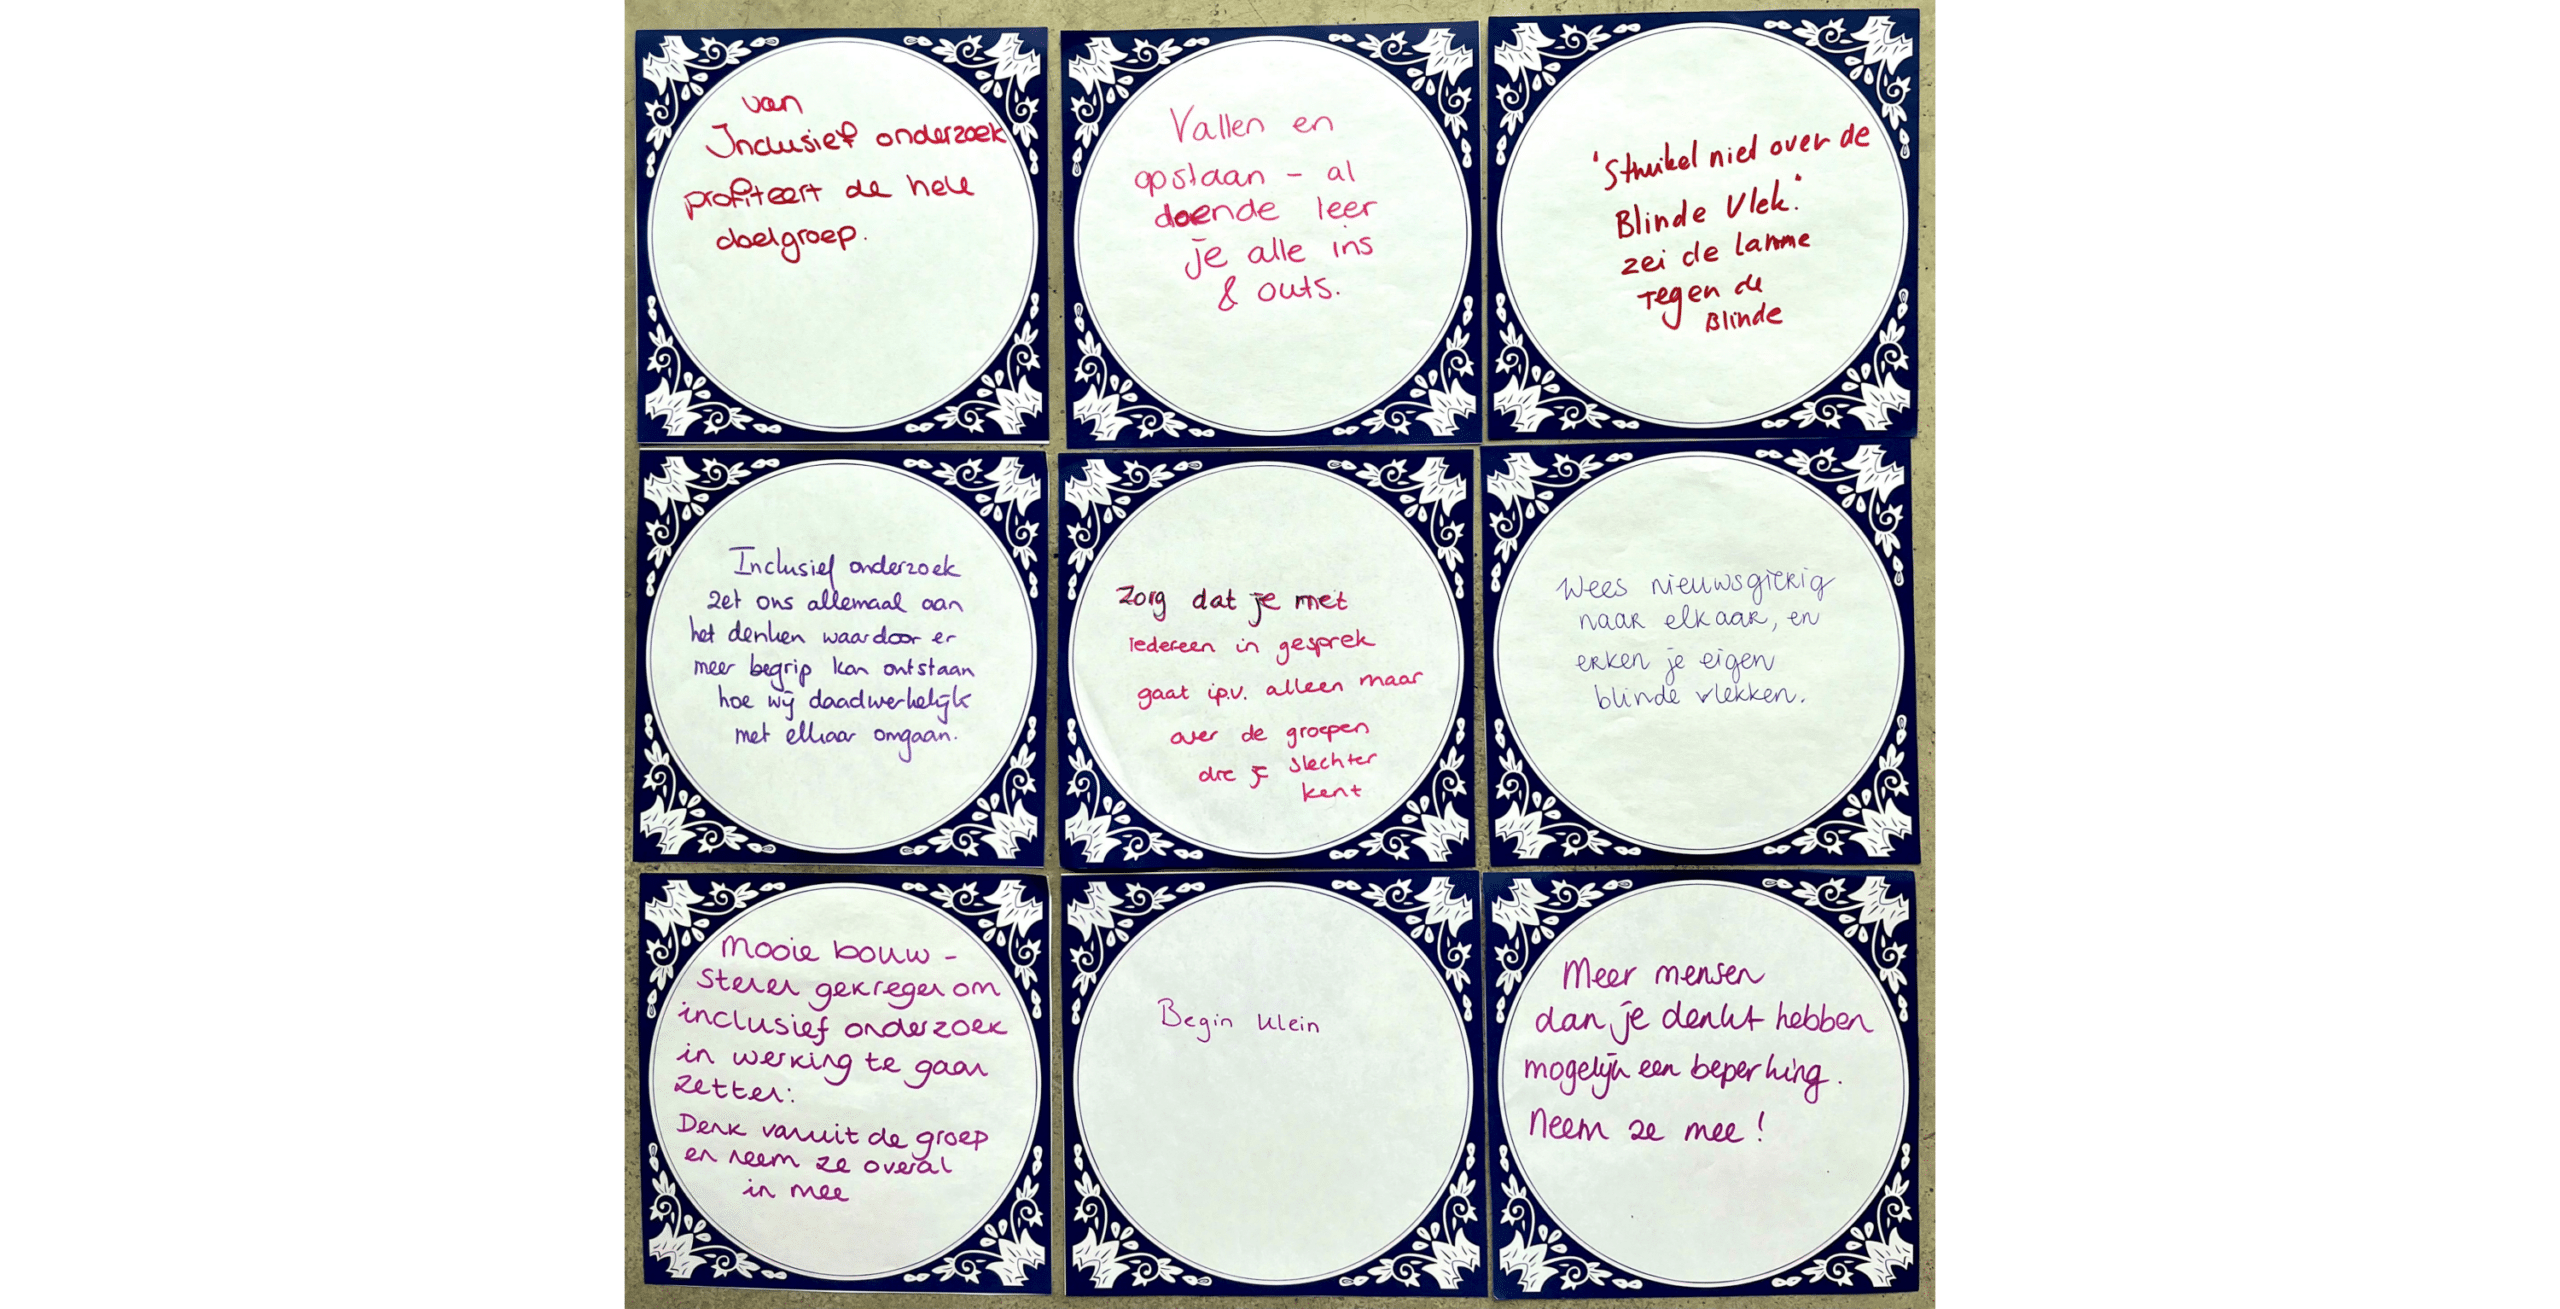 van
Inclusief onderzoek
profiteert de hele
doelgroep.
Vallen en
opstaan - al
doende leer
je alle ins
& outs.
'Struikel niet over de
Blinde Vlek.'
zei de lamme
tegen de
Blinde
Inclusief onderzoek
zet ons allemaal aan
het denken waardoor er
meer begrip kan ontstaan
hoe wij daadwerkelijk
met elkaar omgaan.
Zorg dat je met
iedereen in gesprek
gaat i.p.v. alleen maar
over de groepen
die je slechter
kent
Wees nieuwsgierig
naar elkaar, en
erken je eigen
blinde vlekken.
Mooie bouw -
stenen gekregen om
inclusief onderzoek
in werking te gaan
zetten:
Denk vanuit de groep
en neem ze overal
in mee
Begin klein
Meer mensen
dan je denkt hebben
mogelijk een beperking.
Neem ze mee!